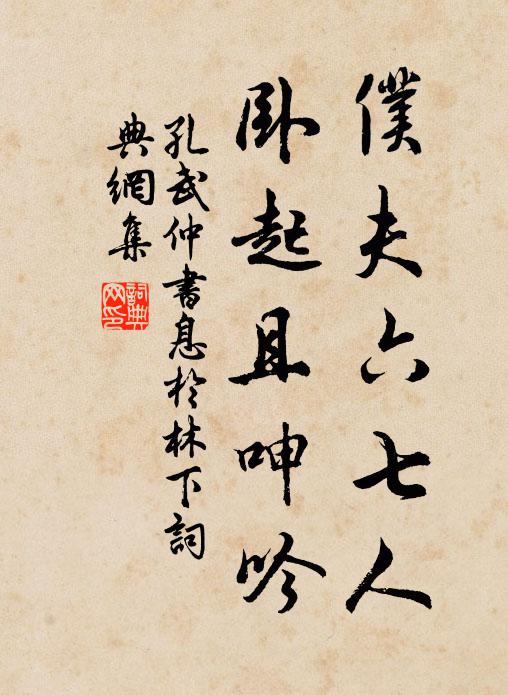 僕夫六七人
卧起且呻吟
孔武仲書息於林下詞
典網集
詞典網印